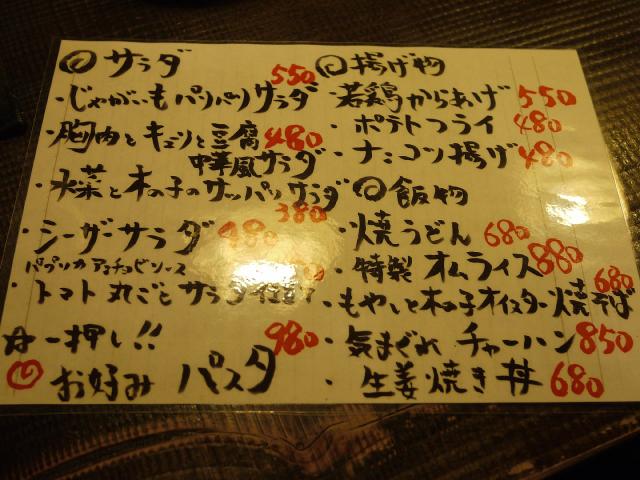 サラダ
・じゃがいもパリパリサラダ 550
・胸肉とキュウリと豆腐 480
中華風サラダ
・水菜と木の子のサッパリサラダ
380
・シーザーサラダ 480
パプリカアンチョビソース
・トマト丸ごとサラダ
☆一押し!! 980
お好みパスタ
揚げ物
・若鶏からあげ 550
・ポテトフライ 480
・ナンコツ揚げ 480
飯物
・焼うどん 680
・特製オムライス 880
・もやしと木の子オイスター焼そば 680
・気まぐれチャーハン 850
・生姜焼き丼 680